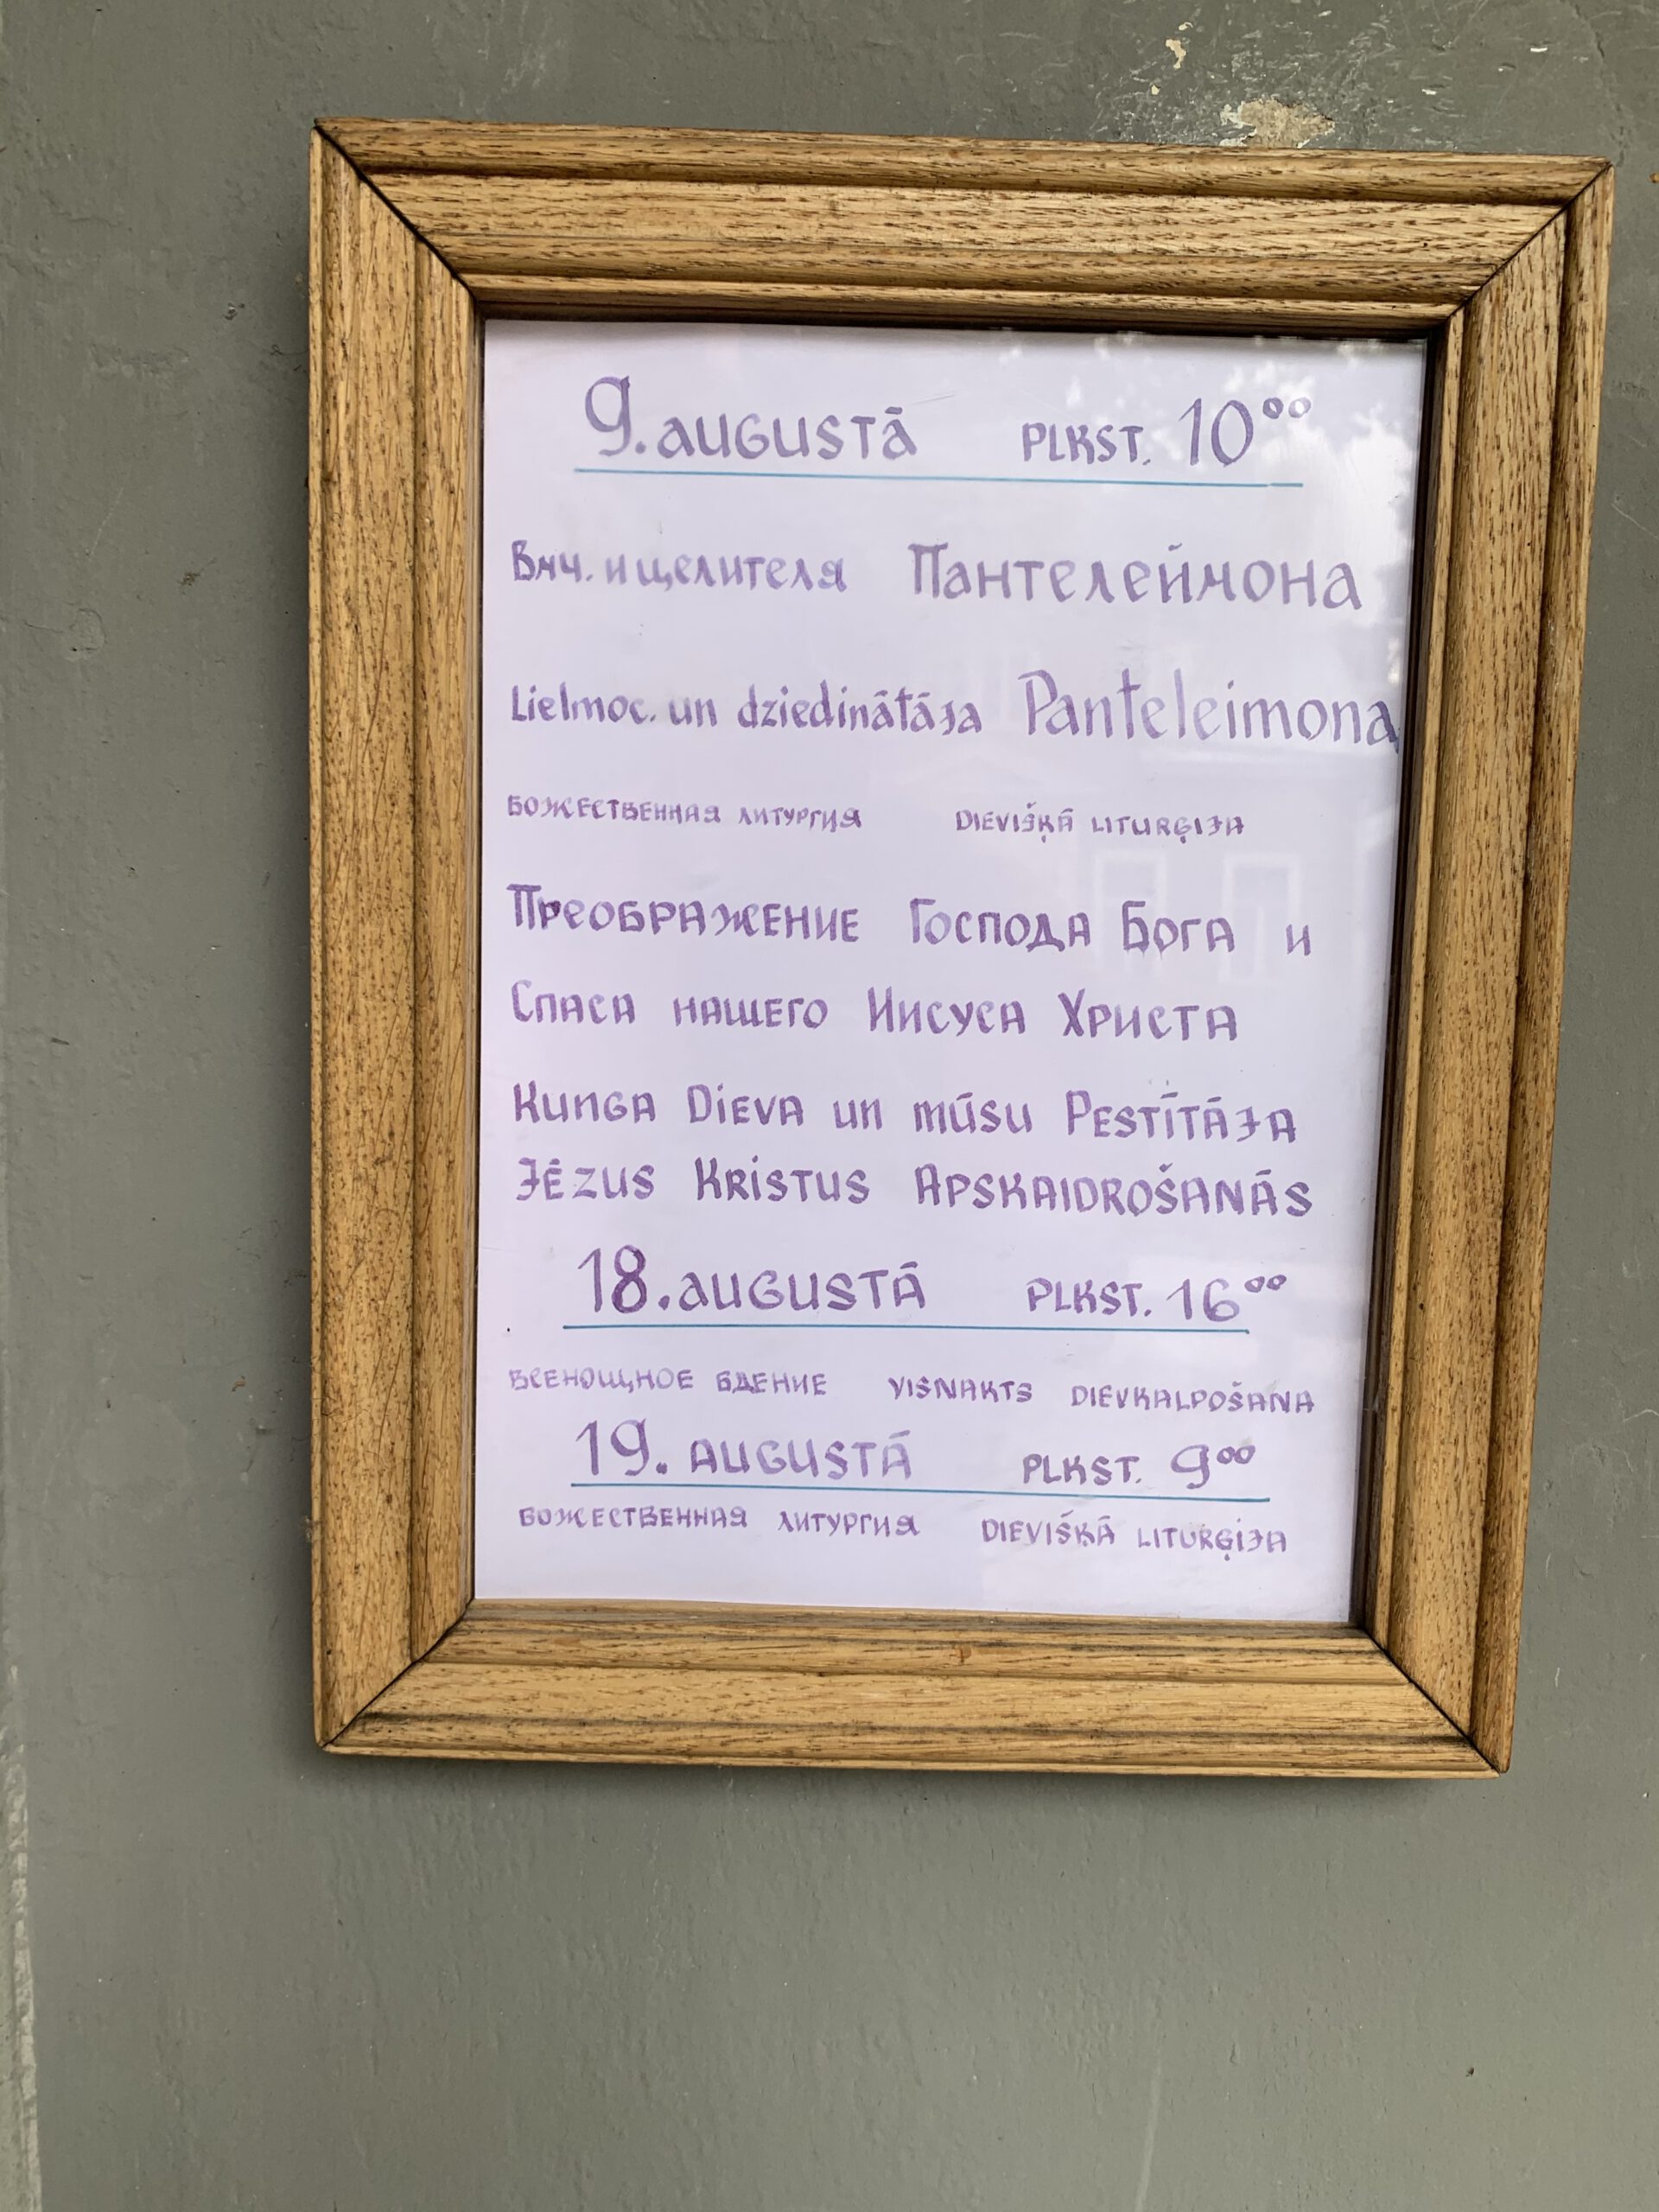 9. AUGUSTĀ PLKST. 10⁰⁰
Вмч. и целителя Пантелеймона
Lielmoc. un dziedinātāja Panteleimona
БОЖЕСТВЕННАЯ ЛИТУРГИЯ DIEVIŠĶĀ LITURĢIJA
ПРЕОБРАЖЕНИЕ ГОСПОДА БОГА И
СПАСА НАШЕГО ИИСУСА ХРИСТА
KUNGA DIEVA UN MŪSU PESTĪTĀJA
JĒZUS KRISTUS APSKAIDROŠANĀS
18. AUGUSTĀ PLKST. 16⁰⁰
ВСЕНОЩНОЕ БДЕНИЕ VISNAKTS DIEVKALPOŠANA
19. AUGUSTĀ PLKST. 9⁰⁰
БОЖЕСТВЕННАЯ ЛИТУРГИЯ DIEVIŠĶĀ LITURĢIJA